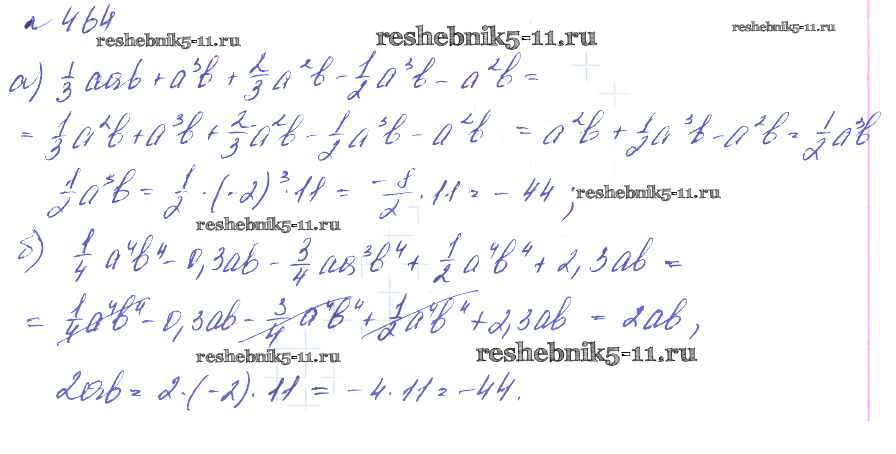 № 464
reshebnik5-11.ru
reshebnik5-11.ru
reshebnik5-11.ru
а) 1/3 aab + a³b + 2/3 a²b − 1/2 a³b − a²b =
= 1/3 a²b + a³b + 2/3 a²b − 1/2 a³b − a²b = a²b + 1/2 a³b − a²b = 1/2 a³b
1/2 a³b = 1/2 · (−2)³ · 11 = −8/2 · 11 = −44;
reshebnik5-11.ru
reshebnik5-11.ru
б) 1/4 a⁴b⁴ − 0,3ab − 3/4 aa³b⁴ + 1/2 a⁴b⁴ + 2,3ab =
= 1/4 a⁴b⁴ − 0,3ab − 3/4 a⁴b⁴ + 1/2 a⁴b⁴ + 2,3ab = 2ab,
reshebnik5-11.ru
reshebnik5-11.ru
2ab = 2 · (−2) · 11 = −4 · 11 = −44.